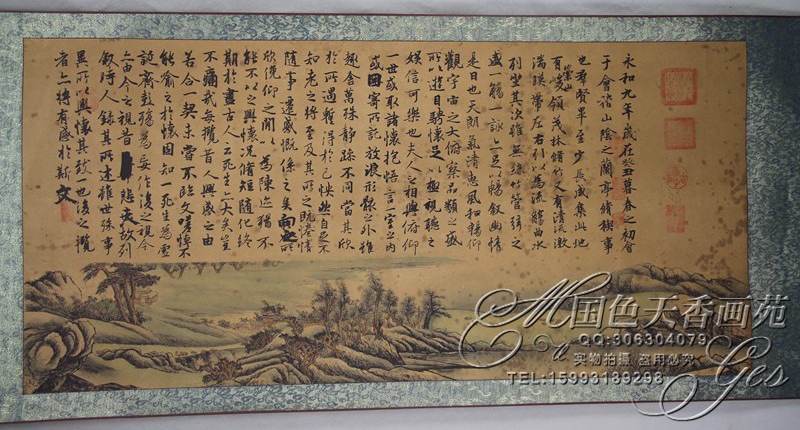 永和九年歲在癸丑暮春之初會
于會稽山陰之蘭亭脩稧事
也羣賢畢至少長咸集此地
有崇山峻領茂林脩竹又有清流激
湍暎帶左右引以為流觴曲水
列坐其次雖無絲竹管弦之
盛一觴一詠亦足以暢敘幽情
是日也天朗氣清惠風和暢仰
觀宇宙之大俯察品類之盛
所以遊目騁懷足以極視聽之
娛信可樂也夫人之相與俯仰
一世或取諸懷抱悟言一室之內
或因寄所託放浪形骸之外雖
趣舍萬殊靜躁不同當其欣
於所遇暫得於己快然自足不
知老之將至及其所之既惓情
隨事遷感慨係之矣向之所
欣俛仰之間以為陳迹猶不
能不以之興懷況脩短隨化終
期於盡古人云死生亦大矣豈
不痛哉每攬昔人興感之由
若合一契未嘗不臨文嗟悼不
能喻之於懷固知一死生為虛
誕齊彭殤為妄作後之視今
亦由今之視昔悲夫故列
敘時人錄其所述雖世殊事
異所以興懷其致一也後之攬
者亦將有感於斯文
国色天香画苑
QQ:306304079
实物拍摄 盗用必究
TEL:15993139298